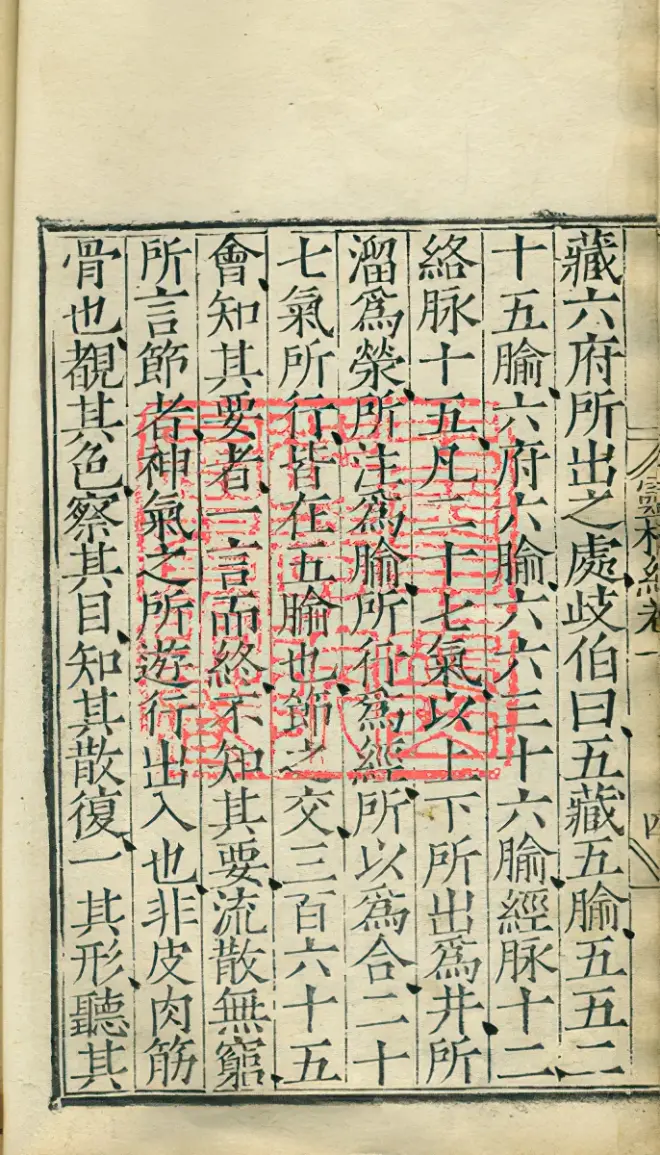 靈樞經卷一 四
藏六府所出之處歧伯曰五藏五腧五五二
十五腧六府六腧六六三十六腧經脉十二
絡脉十五凡二十七氣以上下所出爲井所
溜爲滎所注爲腧所行爲經所以爲合二十
七氣所行皆在五腧也節之交三百六十五
會知其要者一言而終不知其要流散無窮
所言節者神氣之所遊行出入也非皮肉筋
骨也覩其色察其目知其散復一其形聽其